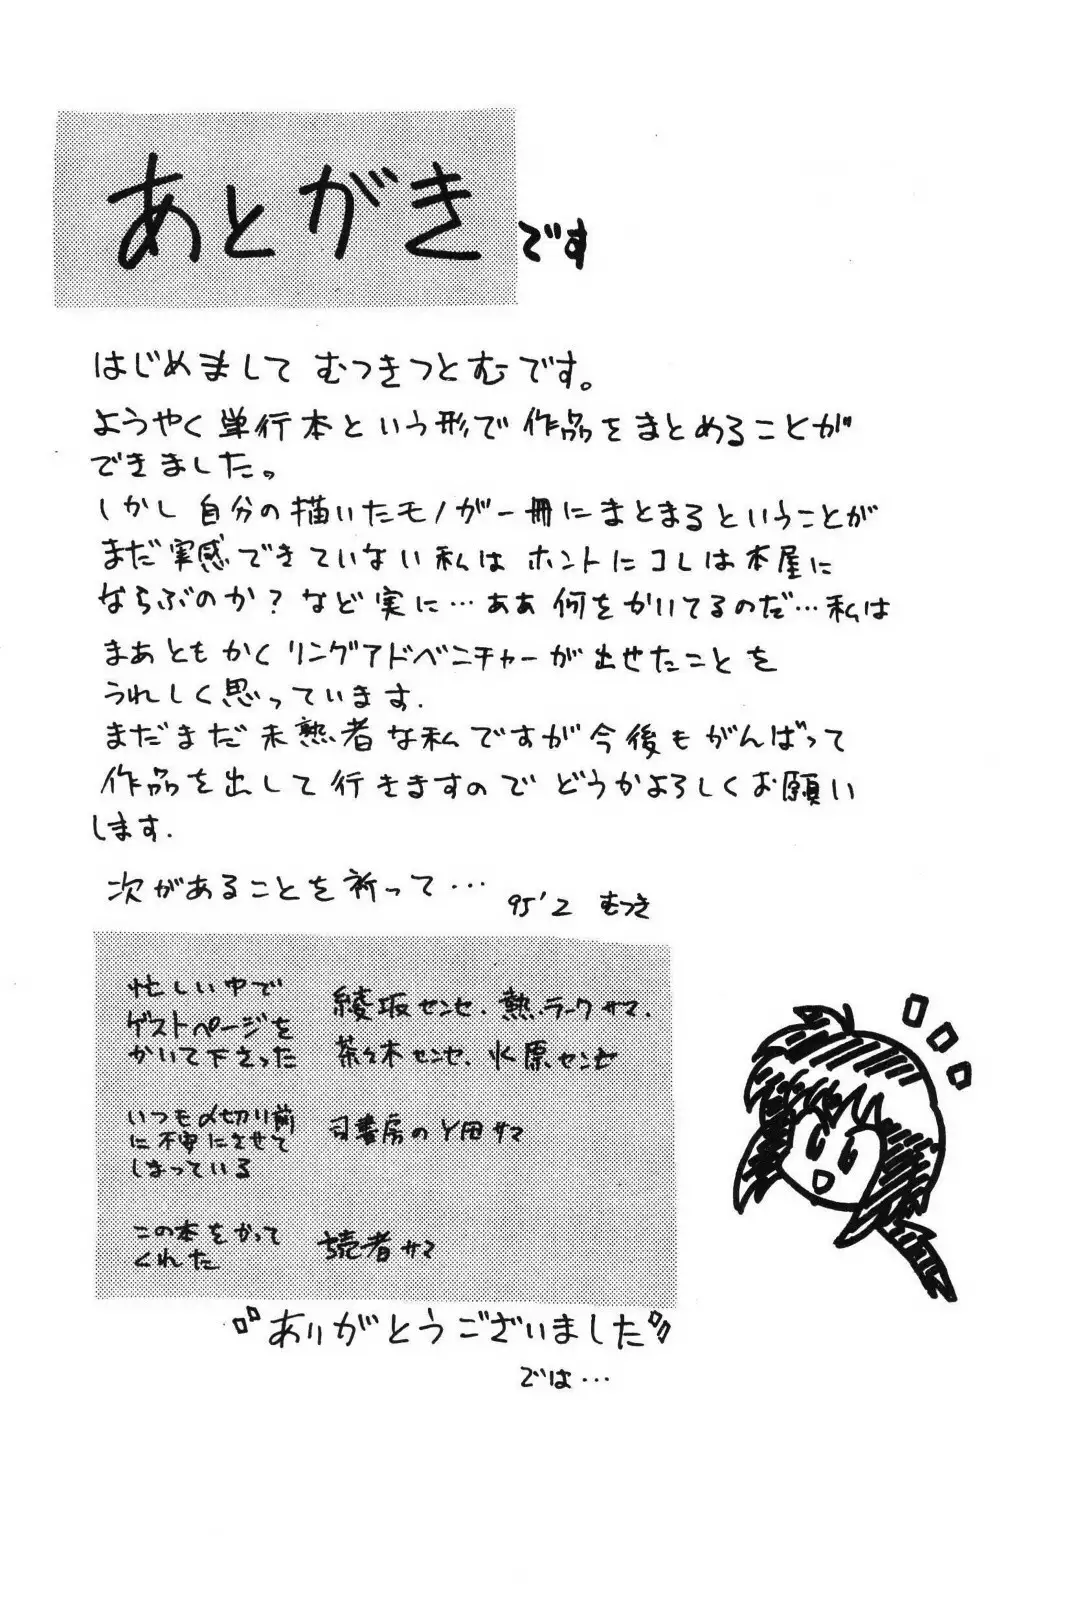 あとがきです
はじめまして むつきつとむです。
ようやく単行本という形で作品をまとめることが
できました。
しかし自分の描いたモノが一冊にまとまるということが
まだ実感できていない私は ホントにコレは本屋に
ならぶのか?など実に…ああ何をかいてるのだ…私は
まあともかくリングアドベンチャーが出せたことを
うれしく思っています.
まだまだ未熟者な私ですが今後もがんばって
作品を出して行きますので どうかよろしくお願い
します.
次があることを祈って…
95'2 むつき
忙しい中で
ゲストページを
かいて下さった
綾坂センセ、熱・ラークサマ、
茶々木センセ、火原センセ
いつも〆切り前
に不安にさせて
しまっている
司書房のY田サマ
この本をかって
くれた
読者サマ
ありがとうございました
では…